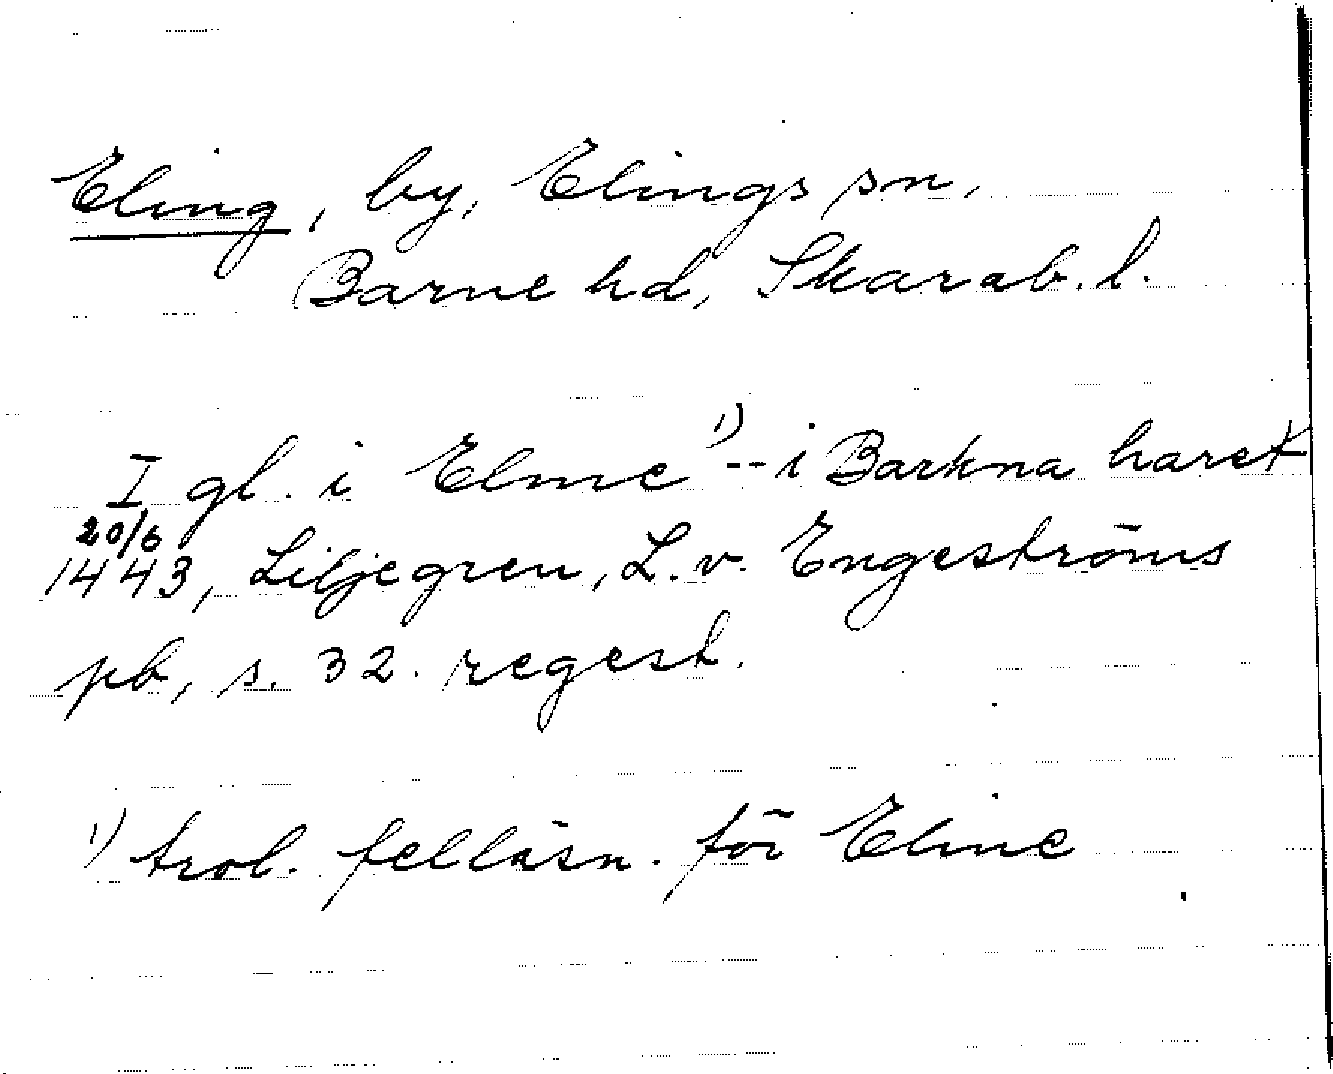 Eling, by, Elings sn,
Barne hd, Skarab. l.
I gl. i Elme 1) -- i Barkna haret
20/6
1443, Liljegren, L. v. Engeströms
pb, s. 32. regest.
1) trol. felläsn. för Eline